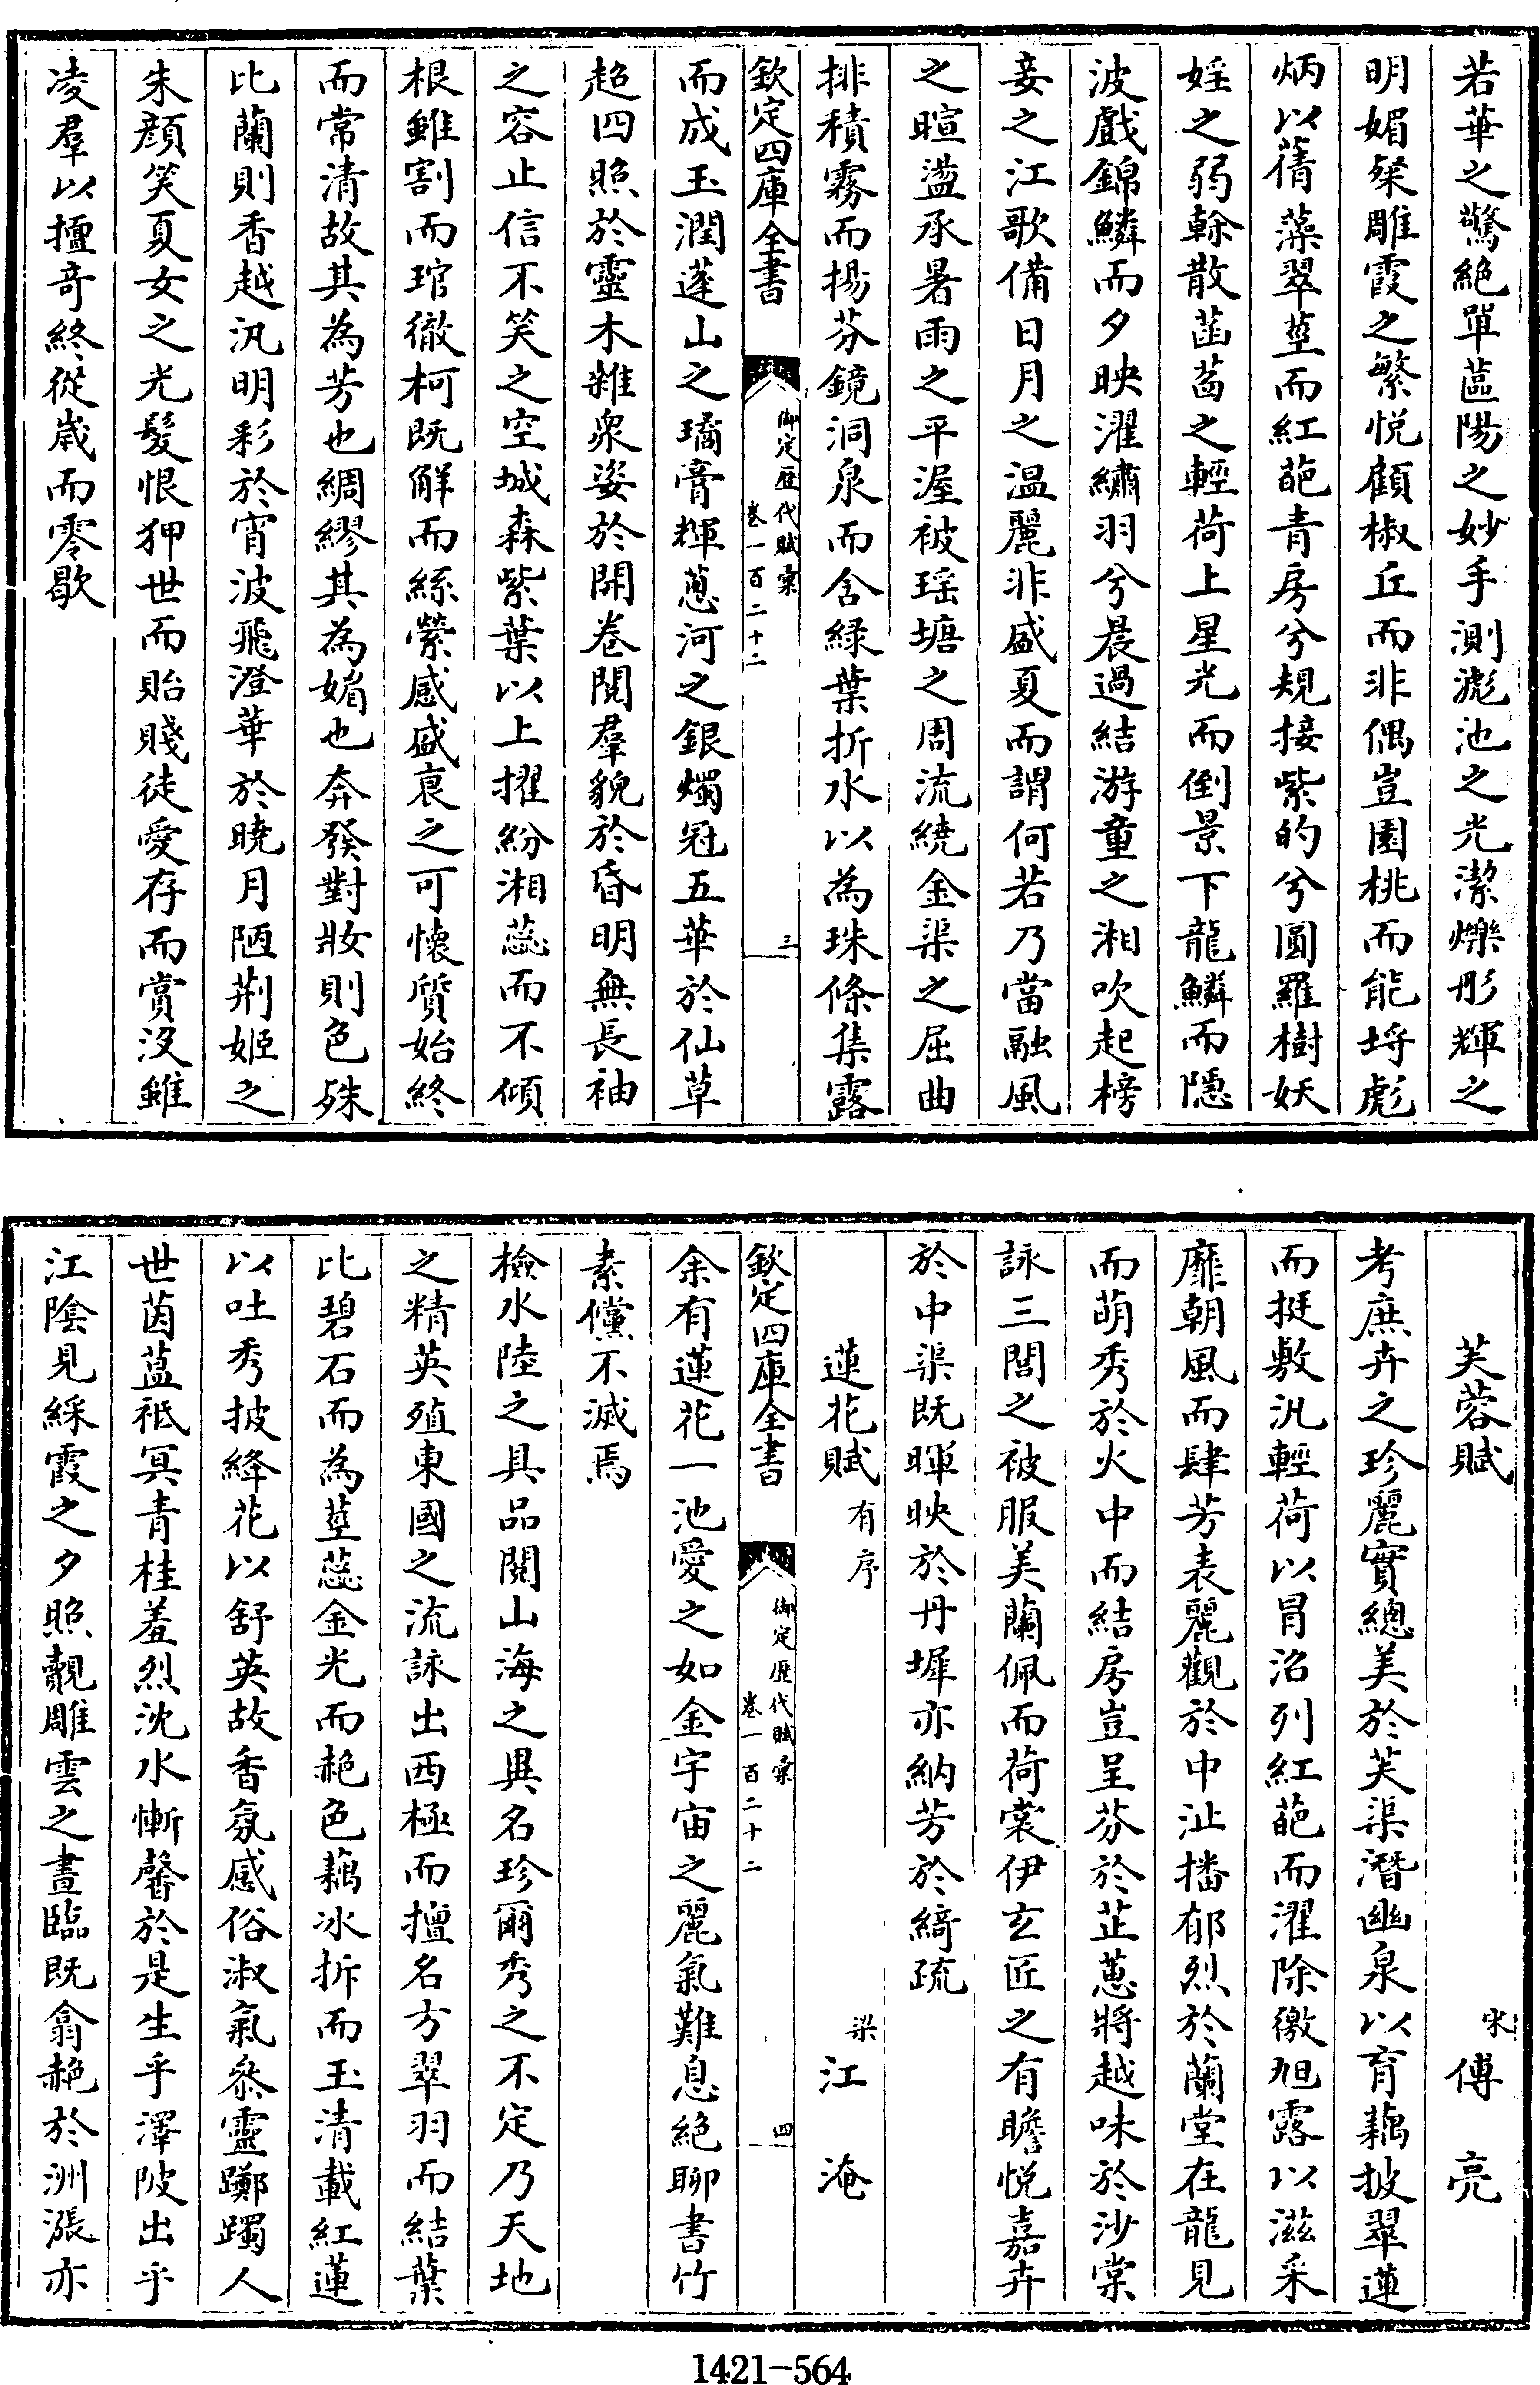 若華之驚絶單蘆陽之妙手測滮池之光潔爍彤輝之
明媚粲雕霞之繁悦顧椒丘而非偶豈園桃而能埒彪
炳以蒨藻翠莖而紅葩青房兮規接紫的兮圓羅樹妖
婬之弱榦散菡萏之輕荷上星光而倒景下龍鱗而隱
波戲錦鱗而夕映濯繡羽兮晨過結游童之湘吹起榜
妾之江歌備日月之温麗非盛夏而謂何若乃當融風
之暄盪承暑雨之平渥被瑶塘之周流繞金渠之屈曲
排積霧而揚芬鏡洞泉而含緑葉折水以為珠條集露
欽定四庫全書
御定歴代賦彚
卷一百二十二
三
而成玉潤蓬山之璚膏輝蔥河之銀燭冠五華於仙草
超四照於靈木雜衆姿於開卷閱羣貌於昏明無長袖
之容止信不笑之空城森紫葉以上擢紛湘蕊而不傾
根雖割而琯徹柯既解而絲縈感盛衰之可懷質始終
而常清故其為芳也綢繆其為媚也奔發對妝則色殊
比蘭則香越汎明彩於宵波飛澄華於曉月陋荆姬之
朱顔笑夏女之光髮恨狎世而貽賤徒愛存而賞沒雖
凌羣以擅奇終從歲而零歇
芙蓉賦
宋
傅亮
考庶卉之珍麗實總美於芙渠潛幽泉以育藕披翠蓮
而挺敷汎輕荷以冒沼列紅葩而濯除徼旭露以滋采
靡朝風而肆芳表麗觀於中沚播郁烈於蘭堂在龍見
而萌秀於火中而結房豈呈芬於芷蕙將越味於沙棠
詠三閭之被服美蘭佩而荷裳伊玄匠之有瞻悦嘉卉
於中渠既暉映於丹墀亦納芳於綺疏
蓮花賦
有序
梁
江淹
欽定四庫全書
御定歴代賦彚
卷一百二十二
四
余有蓮花一池愛之如金宇宙之麗氣難息絶聊書竹
素儻不滅焉
檢水陸之具品閱山海之異名珍爾秀之不定乃天地
之精英殖東國之流詠出西極而擅名方翠羽而結葉
比碧石而為莖蕊金光而赩色藕冰拆而玉清載紅蓮
以吐秀披絳花以舒英故香氛感俗淑氣參靈躑躅人
世茵蒀祗冥青桂羞烈沈水慚馨於是生乎澤陂出乎
江陰見綵霞之夕照覿雕雲之晝臨既翕赩於洲漲亦
1421-564